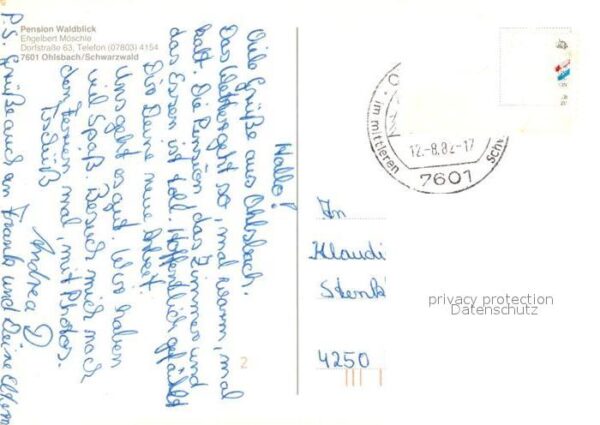 Pension Waldblick
Engelbert Möschle
Dorfstraße 63, Telefon (07803) 4154
7601 Ohlsbach/Schwarzwald
Hallo!
Viele Grüße aus Ohlsbach.
Das Wetter geht so, mal warm, mal
kalt. Die Pension, das Zimmer und
das Essen ist toll. Hoffentlich gefällt
Dir Deine neue Arbeit.
Uns geht es gut. Wir haben
viel Spaß. Besuch mich nach
den Ferien mal, mit Photos.
Tschüß
Andrea D
P.S. Grüße auch an Frank und Deine Eltern
im mittleren Schw
12.-8.82-17
7601
An
Klaudi
Stenk
4250
2
privacy protection
Datenschutz